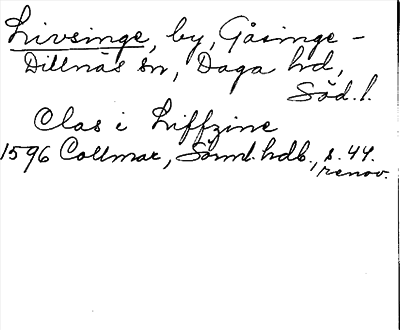 Livsinge, by, Gåsinge -
Dillnäs sn, Daga hd,
Söd. l.
Clas i Liffzine
1596 Collmar, Sörml. hdl., s. 44.
renov.